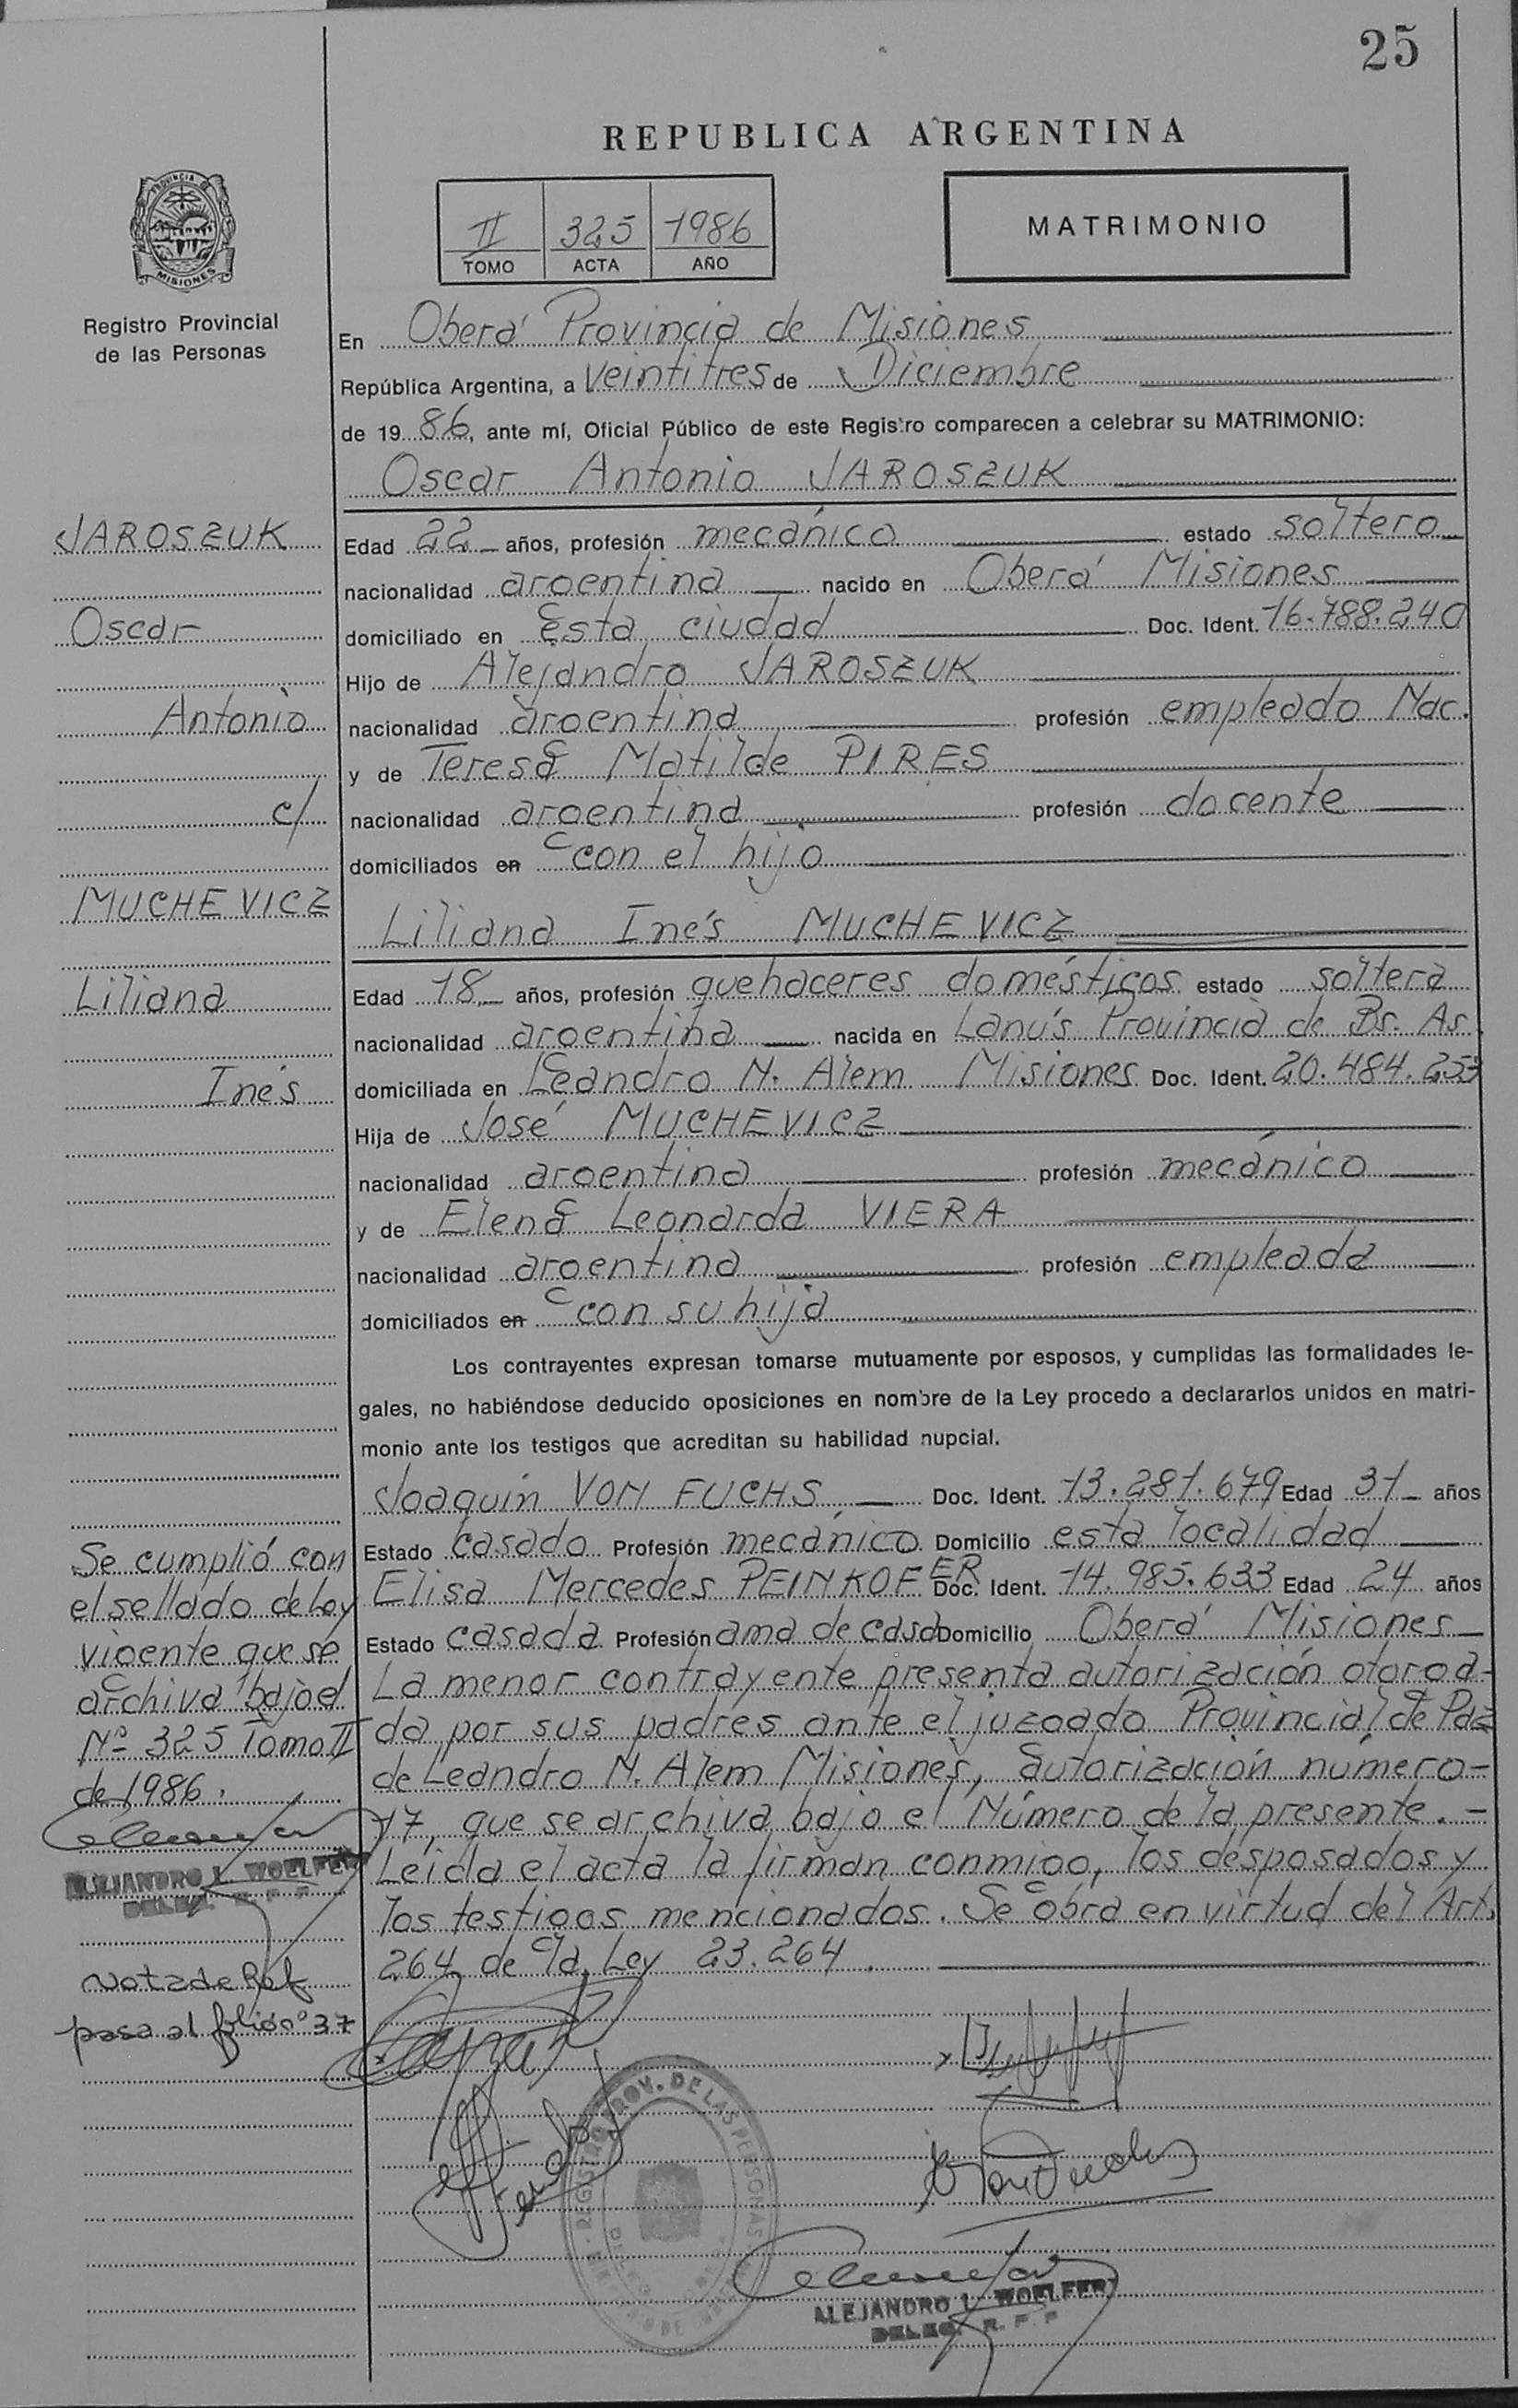 25
REPUBLICA ARGENTINA
II 325 1986
TOMO ACTA AÑO
MATRIMONIO
PROVINCIA DE
MISIONES
Registro Provincial
de las Personas
En Oberá Provincia de Misiones
República Argentina, a Veintitres de Diciembre
de 19 86, ante mí, Oficial Público de este Registro comparecen a celebrar su MATRIMONIO:
Oscar Antonio JAROSZUK
JAROSZUK
Oscar
Antonio
c/
MUCHEVICZ
Liliana
Inés
Edad 22 años, profesión mecánico estado soltero
nacionalidad argentina nacido en Oberá Misiones
domiciliado en Esta ciudad Doc. Ident. 16.788.240
Hijo de Alejandro JAROSZUK
nacionalidad argentina profesión empleado Nac.
y de Teresa Matilde PIRES
nacionalidad argentina profesión docente
domiciliados en con el hijo
Liliana Inés MUCHEVICZ
Edad 18 años, profesión quehaceres domésticos estado soltera
nacionalidad argentina nacida en Lanús Provincia de Bs. As.
domiciliada en Leandro N. Alem Misiones Doc. Ident. 20.484.253
Hija de José MUCHEVICZ
nacionalidad argentina profesión mecánico
y de Elena Leonarda VIERA
nacionalidad argentina profesión empleada
domiciliados en con su hija
Los contrayentes expresan tomarse mutuamente por esposos, y cumplidas las formalidades le-
gales, no habiéndose deducido oposiciones en nombre de la Ley procedo a declararlos unidos en matri-
monio ante los testigos que acreditan su habilidad nupcial.
Joaquín VON FUCHS Doc. Ident. 13.281.679 Edad 31 años
Estado Casado Profesión mecánico Domicilio esta localidad
Elisa Mercedes PEINKOFER Doc. Ident. 14.985.633 Edad 24 años
Estado casada Profesión ama de casa Domicilio Oberá Misiones
La menor contrayente presenta autorización otorga-
da por sus padres ante el juzgado Provincial de Paz
de Leandro N. Alem Misiones, autorización número-
17, que se archiva bajo el Número de la presente.-
Leída el acta la firman conmigo, los desposados y
los testigos mencionados. Se obra en virtud del Art.
264 de la Ley 23.264.
Se cumplió con
el sellado de Ley
vigente que se
archiva bajo el
Nº 325 Tomo II
de 1986.
ALEJANDRO L. WOELFERT
DELEG. R. P. P
Nota de Ref
pasa al folio nº 37
REGISTRO PROV. DE LAS PERSONAS
ALEJANDRO L. WOELFERT
DELEG. R. P. P